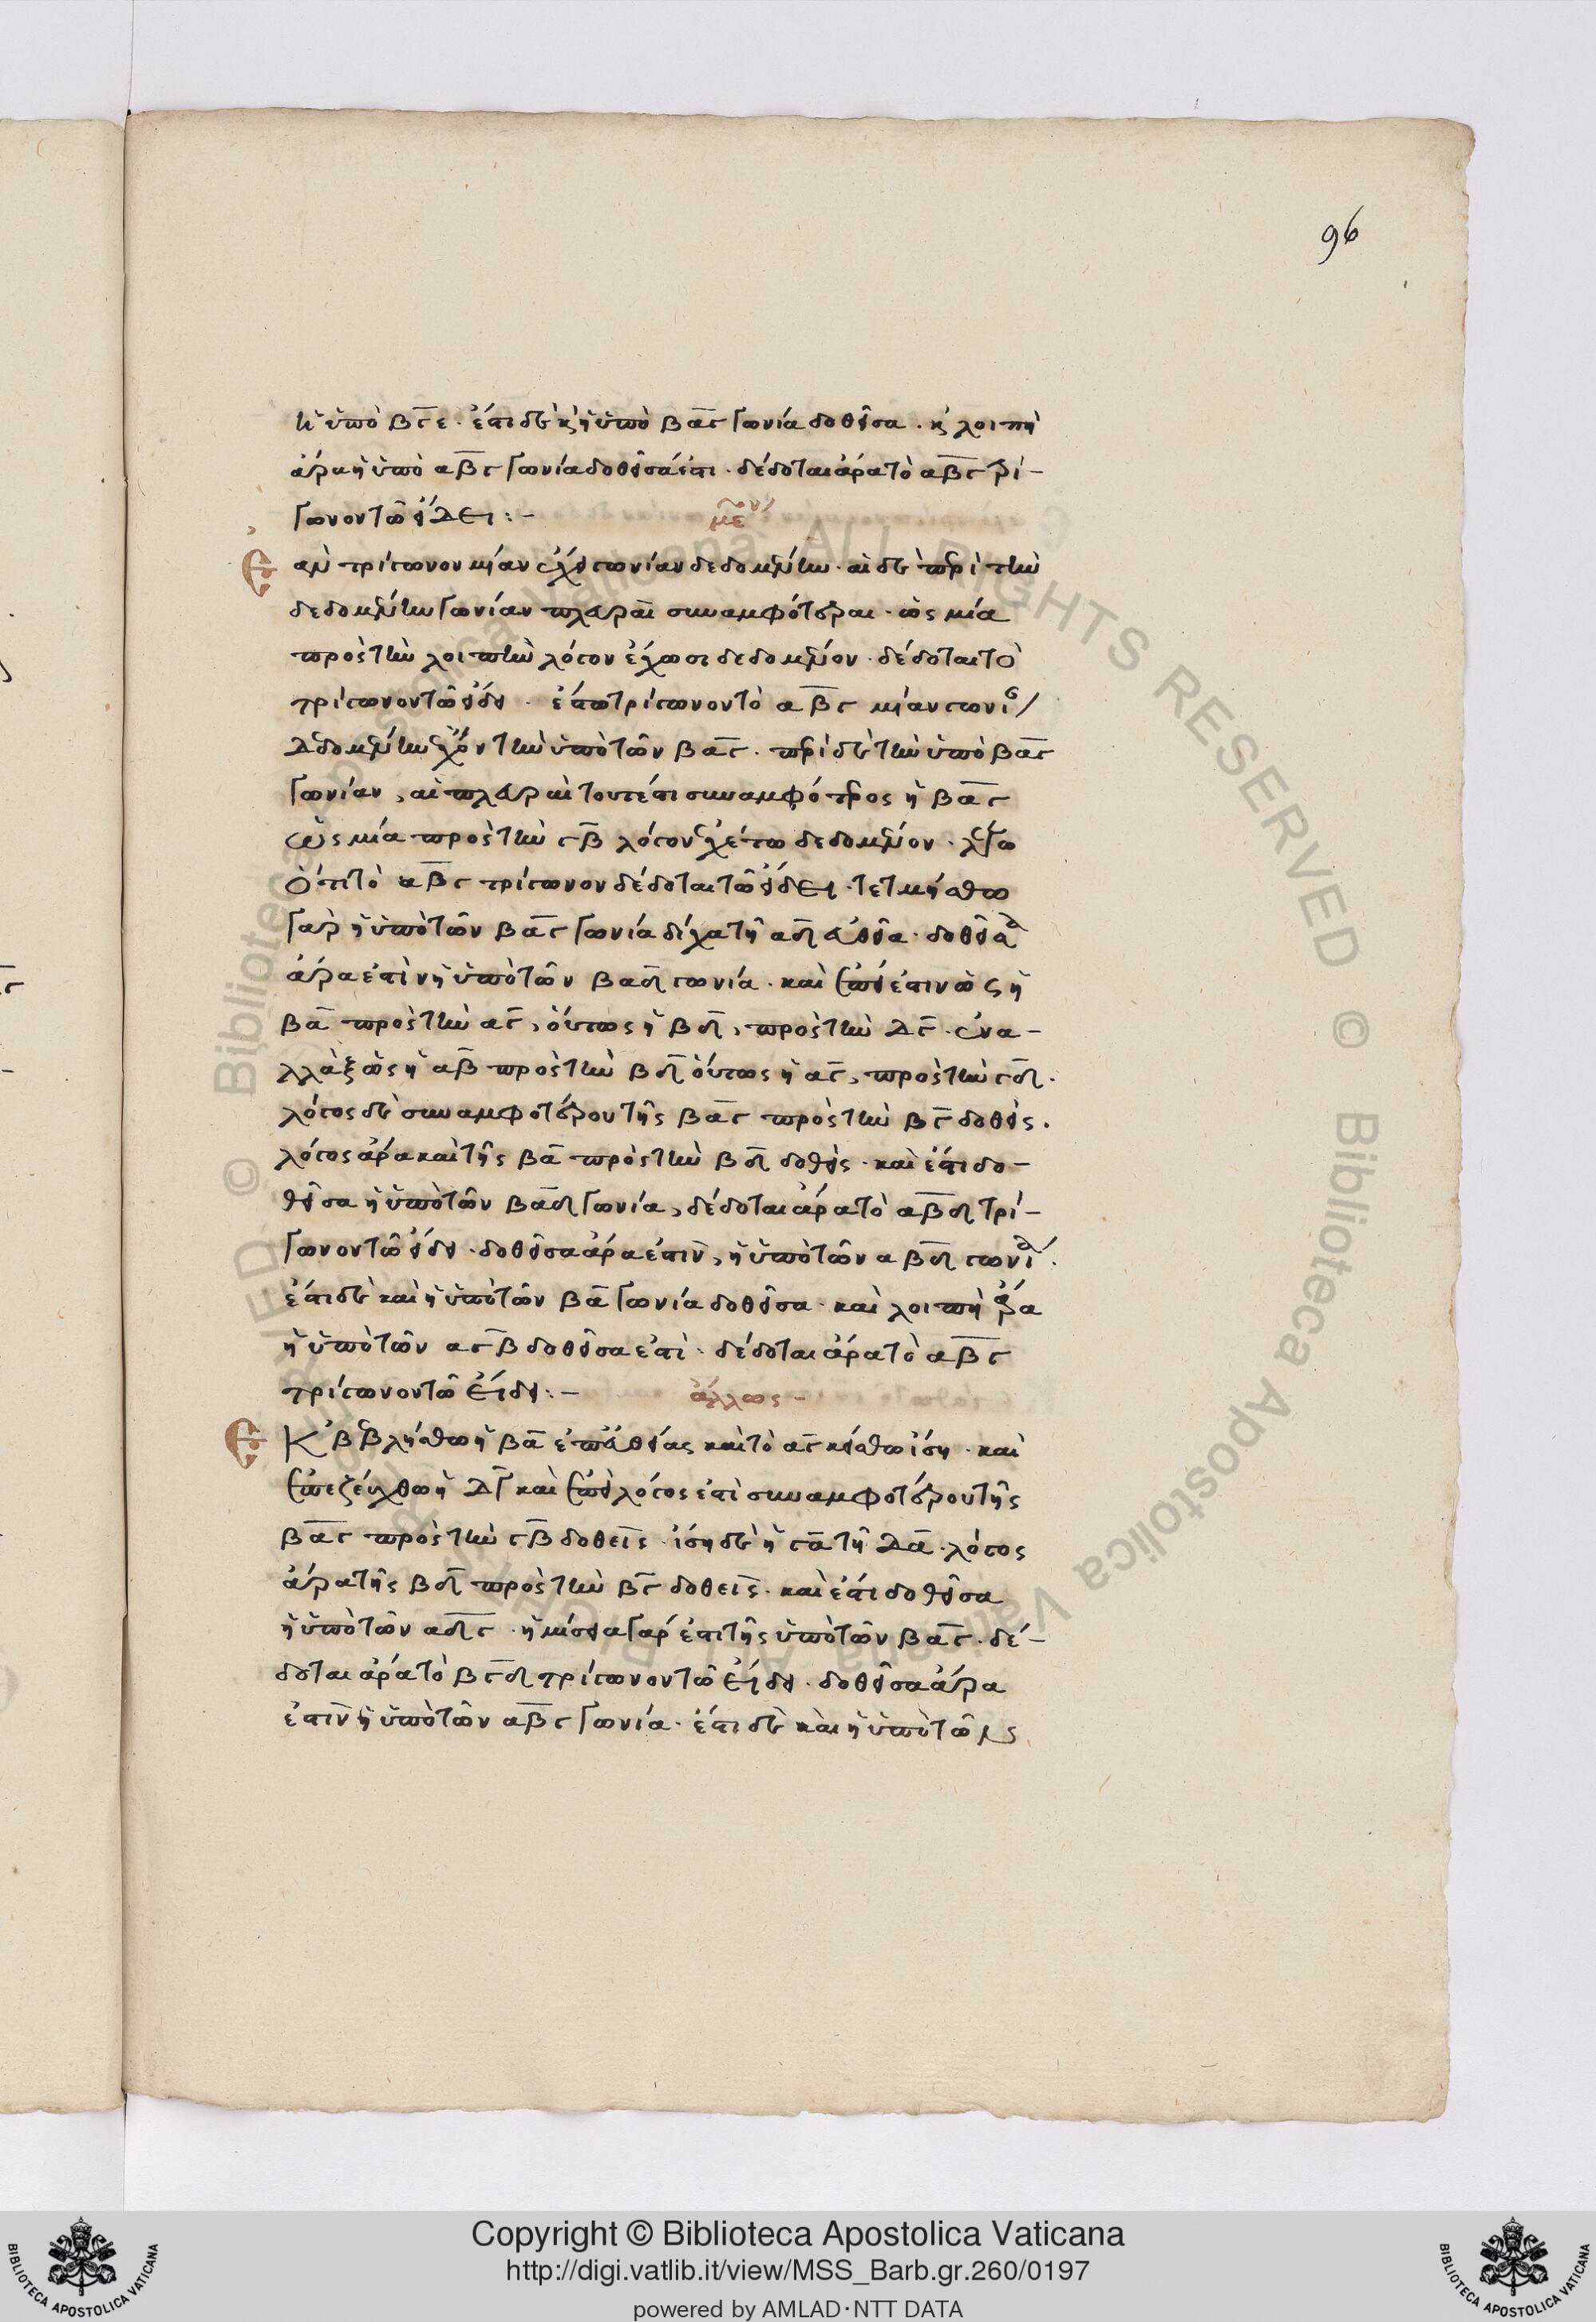 96
ἡ ὑπὸ βγε. ἔστι δὲ κ ἡ ὑπὸ βαγ γωνία δοθεῖσα. κ λοιπὴ
ἄρα ἡ ὑπὸ αβγ γωνία δοθεῖσά ἐστι. δέδοται ἄρα τὸ αβγ τρί-
γωνον τῶ εἴδει:-
με
Ἐὰν τρίγωνον μίαν ἔχη γωνίαν δεδομένην. αἱ δὲ περὶ τὴν
δεδομένην γωνίαν πλευραὶ συναμφότεραι. ὡς μία
πρὸς τὴν λοιπὴν λόγον ἔχωσι δεδομένον. δέδοται τὸ
τρίγωνον τῶ εἴδει. ἔστω τρίγωνον τὸ αβγ μίαν γωνί
δεδομένην ἔχον τὴν ὑπὸ τῶν βαγ. περὶ δὲ τὴν ὑπὸ βαγ
γωνίαν, αἱ πλευραὶ τουτέστι συναμφότερος ἡ βαγ
ὡς μία πρὸς τὴν γβ λόγον ἐχέτω δεδομένον. λέγω
ὅτι τὸ αβγ τρίγωνον δέδοται τῶ εἴδει. τετμήσθω
γὰρ ἡ ὑπὸ τῶν βαγ γωνία δίχα τῆ αδ εὐθεῖα. δοθεῖσα
ἄρα ἐστὶν ἡ ὑπὸ τῶν βαδ γωνία. καὶ ἐπεί ἐστιν ὡς ἡ
βα πρὸς τὴν αγ, οὕτως ἡ βδ, πρὸς τὴν δγ. ἐνα-
λλὰξ ὡς ἡ αβ πρὸς τὴν βδ οὕτως ἡ αγ, πρὸς τὴν γδ.
λόγος δὲ συναμφοτέρου τῆς βαγ πρὸς τὴν βγ δοθείς.
λόγος ἄρα καὶ τῆς βα πρὸς τὴν βδ δοθείς. καὶ ἔστι δο-
θεῖσα ἡ ὑπὸ τῶν βαδ γωνία, δέδοται ἄρα τὸ αβδ τρί-
γωνον τῶ εἴδει. δοθεῖσα ἄρα ἐστὶν, ἡ ὑπὸ τῶν αβδ γωνία.
ἔστι δὲ καὶ ἡ ὑπὸ τῶν βα γωνία δοθεῖσα. καὶ λοιπὴ ἄρα
ἡ ὑπὸ τῶν αγβ δοθεῖσα ἐστὶ. δέδοται ἄρα τὸ αβγ
τρίγωνον τῶ εἴδει:-
ἄλλως-
Ἐκβεβλήσθω ἡ βα ἐπ εὐθείας καὶ τὸ αγ κείσθω ἴση. καὶ
ἐπεζεύχθω ἡ δγ καὶ ἐπεὶ λόγος ἐστὶ συναμφοτέρου τῆς
βαγ πρὸς τὴν γβ δοθεὶς. ἴση δὲ ἡ γα τῆ δα. λόγος
ἄρα τῆς βδ πρὸς τὴν βγ δοθεὶς. καὶ ἔστι δοθεῖσα
ἡ ὑπὸ τῶν αδγ. ἡμίσεια γάρ ἐστι τῆς ὑπὸ τῶν βαγ. δέ-
δοται ἄρα τὸ βγδ τρίγωνον τῶ εἴδει. δοθεῖσα ἄρα
ἐστὶν ἡ ὑπὸ τῶν αβγ γωνία. ἔστι δὲ καὶ ἡ ὑπὸ τῶν
Copyright © Biblioteca Apostolica Vaticana
http://digi.vatlib.it/view/MSS_Barb.gr.260/0197
powered by AMLAD·NTT DATA
BIBLIOTECA APOSTOLICA VATICANA
BIBLIOTECA APOSTOLICA VATICANA